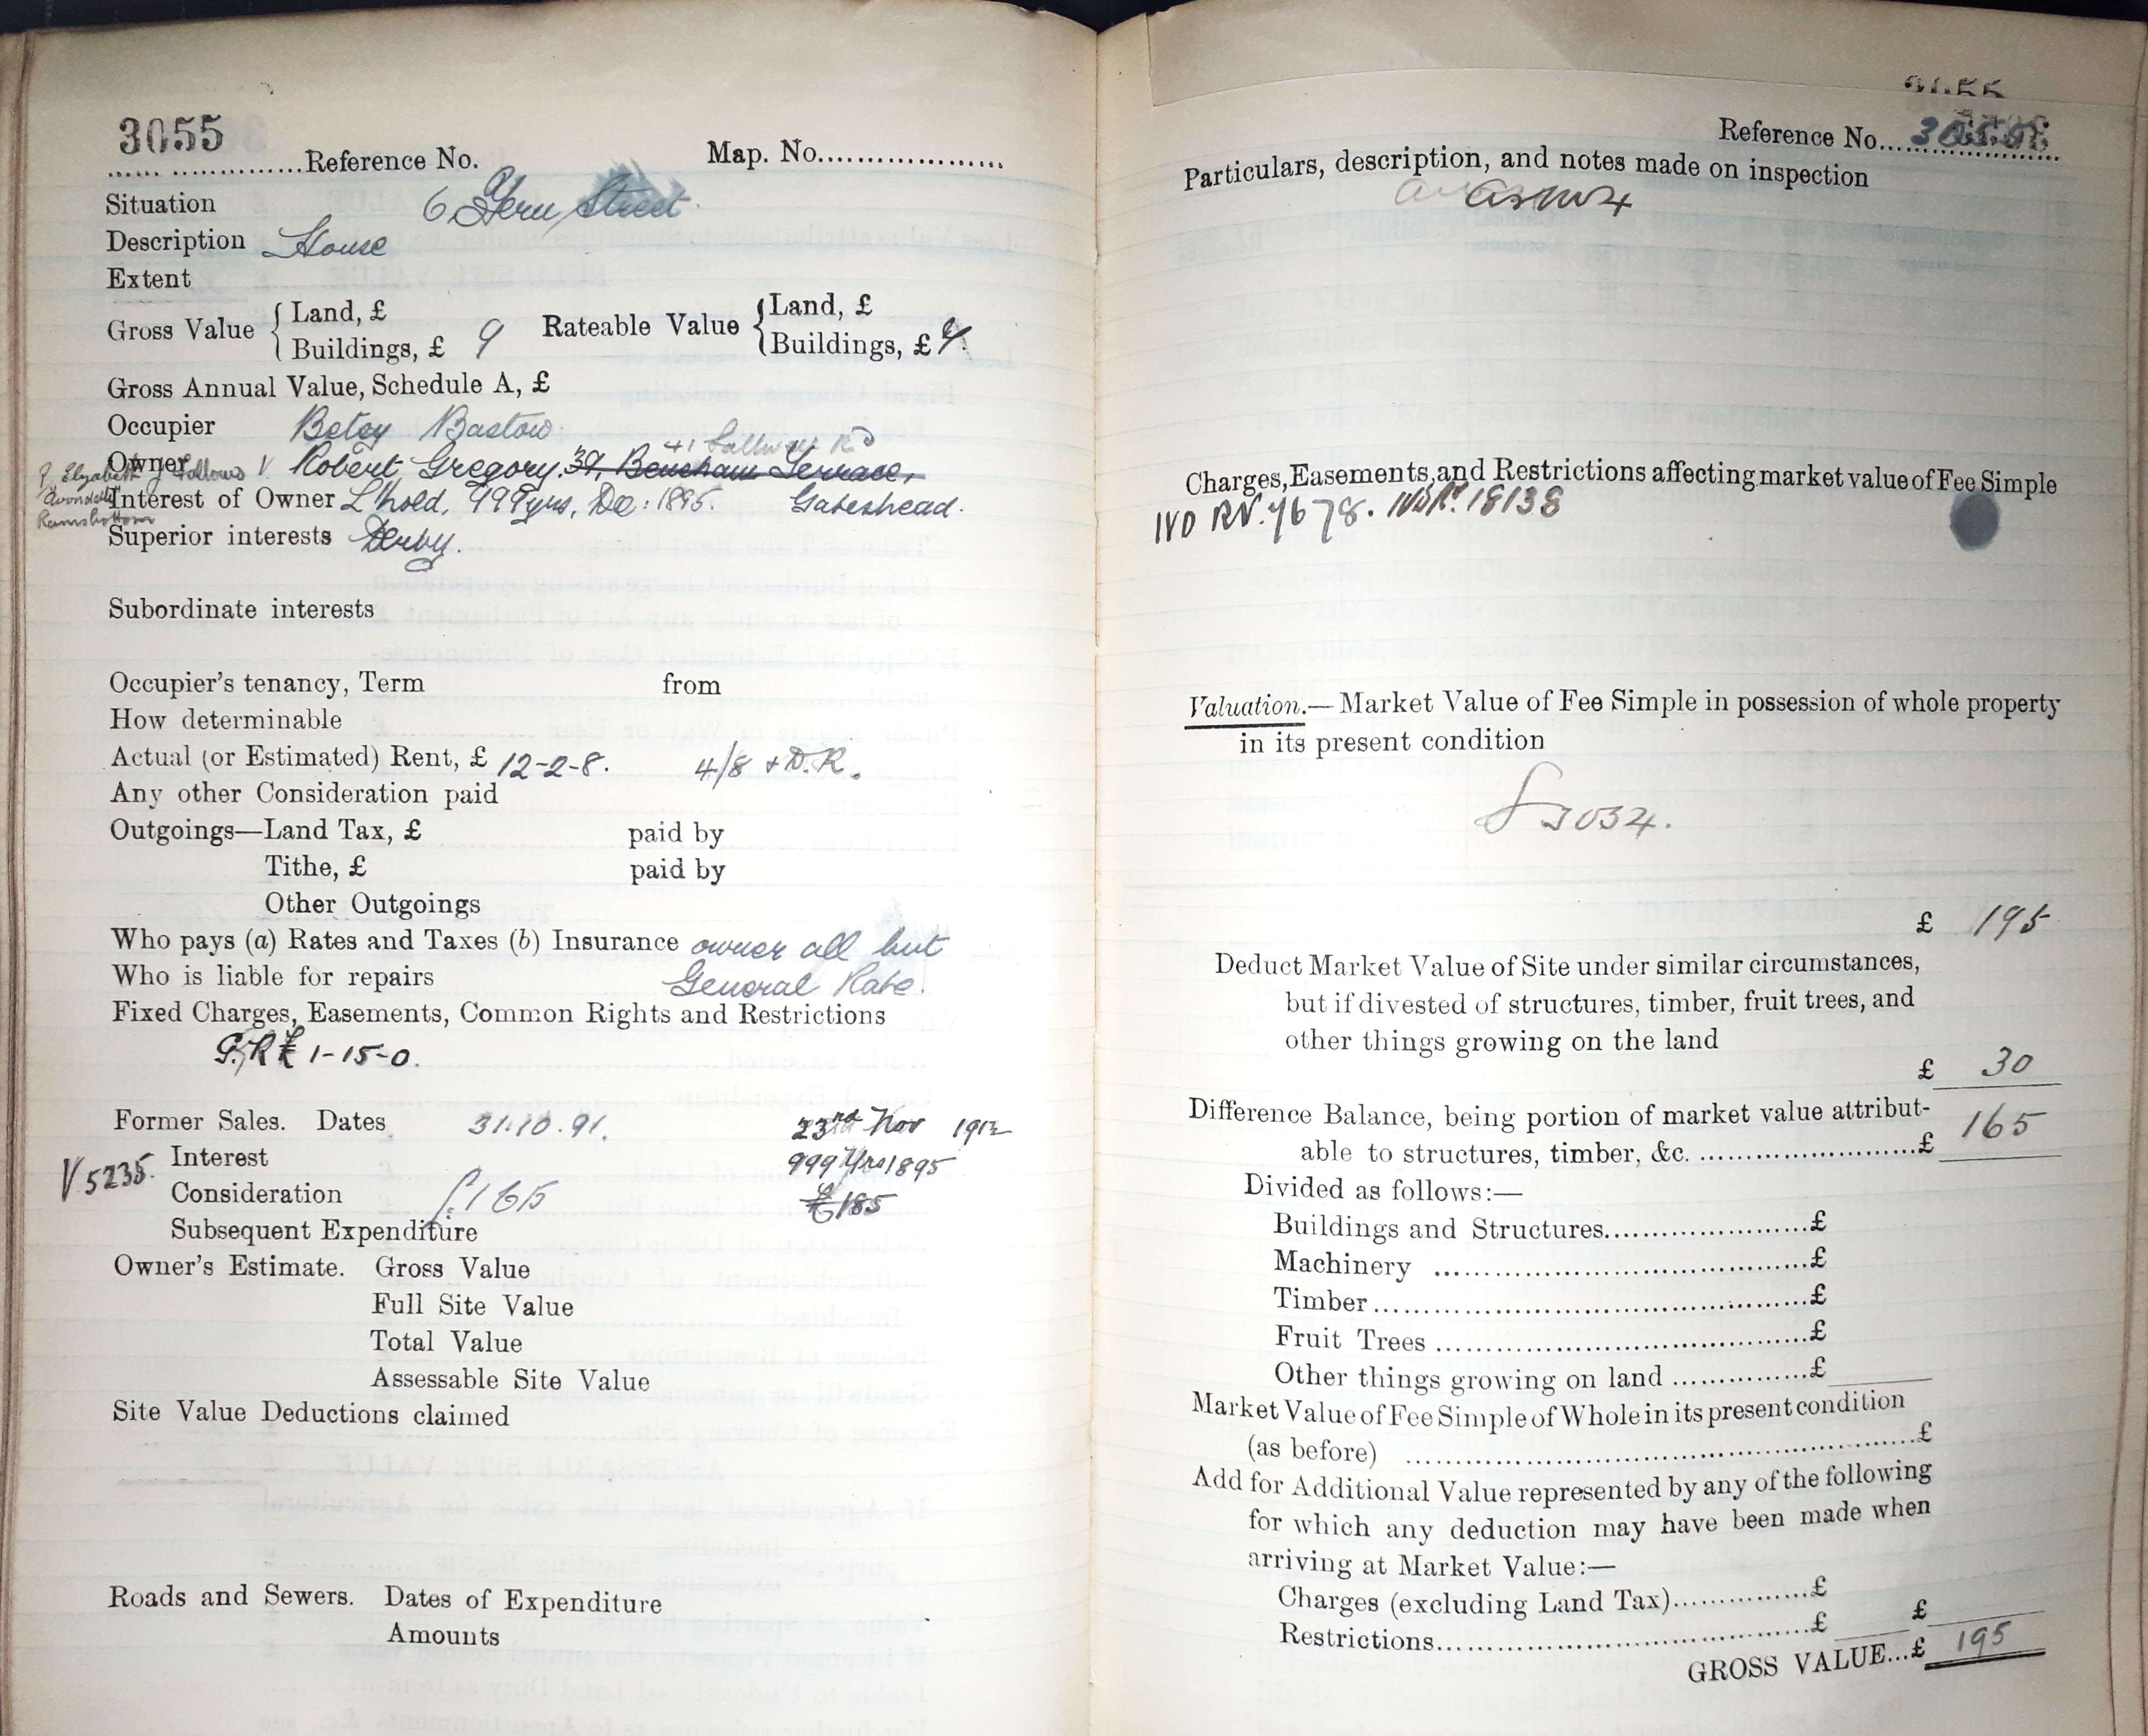 3055
Reference No. Map. No.
Situation 6 Fern Street
Description House
Extent
Gross Value { Land, £ Rateable Value { Land, £
Buildings, £ 9 Buildings, £
Gross Annual Value, Schedule A, £
Occupier Betsy Bastow
41 Rd
Owner Robert Gregory. 39, Bensham Terrace,
Elizabeth J Fallows
Interest of Owner L'hold, 999 yrs, De: 1895. Gateshead.
Avondale
Ramsbottom
Superior interests Derby.
Subordinate interests
Occupier's tenancy, Term from
How determinable
Actual (or Estimated) Rent, £ 12-2-8. 4/8 + D.R.
Any other Consideration paid
Outgoings—Land Tax, £ paid by
Tithe, £ paid by
Other Outgoings
Who pays (a) Rates and Taxes (b) Insurance owner all but
Who is liable for repairs General Rate.
Fixed Charges, Easements, Common Rights and Restrictions
G.R £ 1-15-0.
Former Sales. Dates 31.10.91. 23rd Nov 1912
Interest 999 Yrs 1895
V 5235.
Consideration £165 £185
Subsequent Expenditure
Owner's Estimate. Gross Value
Full Site Value
Total Value
Assessable Site Value
Site Value Deductions claimed
Roads and Sewers. Dates of Expenditure
Amounts
Reference No.
Particulars, description, and notes made on inspection
Charges, Easements, and Restrictions affecting market value of Fee Simple
IVD RV. 4678. 18138
Valuation.— Market Value of Fee Simple in possession of whole property
in its present condition
3034.
£ 195
Deduct Market Value of Site under similar circumstances,
but if divested of structures, timber, fruit trees, and
other things growing on the land
£ 30
Difference Balance, being portion of market value attribut-
able to structures, timber, &c. £ 165
Divided as follows:—
Buildings and Structures £
Machinery £
Timber £
Fruit Trees £
Other things growing on land £
Market Value of Fee Simple of Whole in its present condition
(as before) £
Add for Additional Value represented by any of the following
for which any deduction may have been made when
arriving at Market Value:—
Charges (excluding Land Tax) £
Restrictions £ £
GROSS VALUE...£ 195